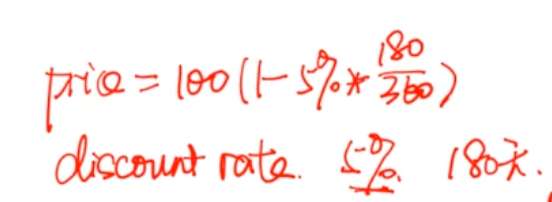 price = 100 (1 - 5% * 180/360)
discount rate. 5%. 180天.